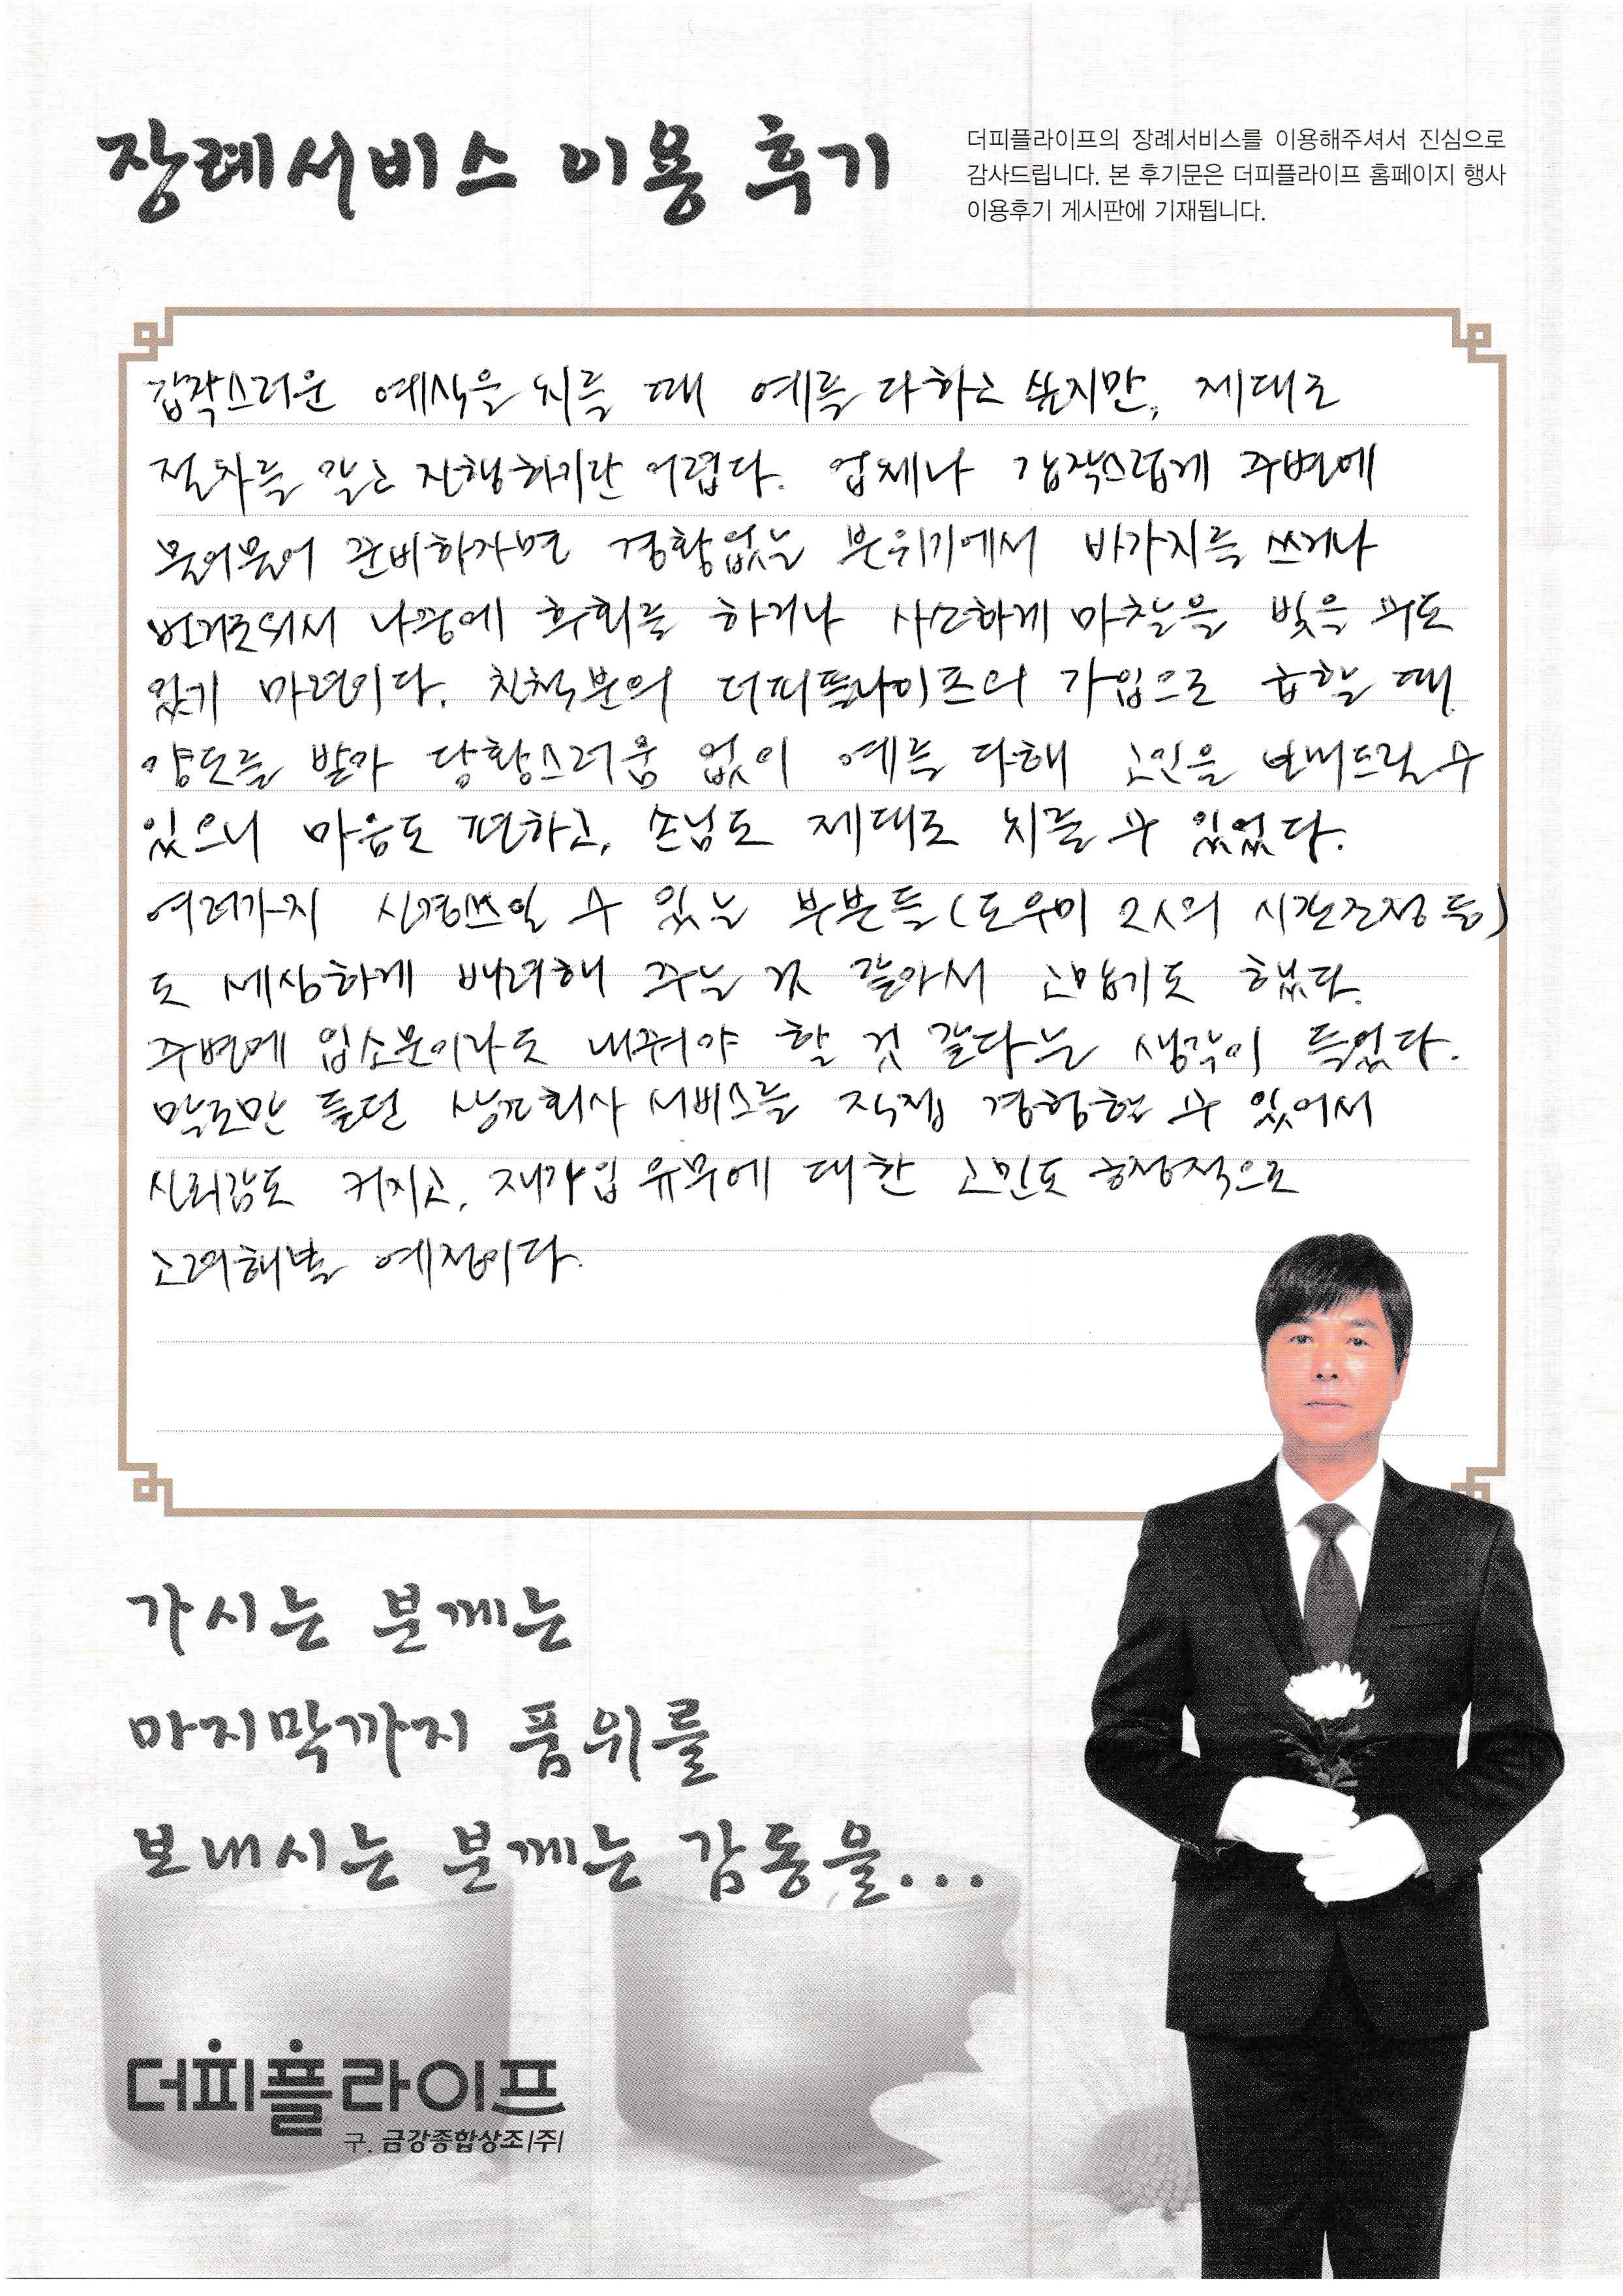 장례서비스 이용 후기
더피플라이프의 장례서비스를 이용해주셔서 진심으로
감사드립니다. 본 후기문은 더피플라이프 홈페이지 행사
이용후기 게시판에 기재됩니다.
갑작스러운 예식을 치를 때 예를 다하고 싶지만, 제대로
절차를 알고 진행하기란 어렵다. 업체나 갑작스럽게 주변에
물어물어 준비하자면 경황없는 분위기에서 바가지를 쓰거나
번거로워서 나중에 후회를 하거나 사소하게 마찰을 빚을 수도
있기 마련이다. 친척분의 더피플라이프의 가입으로 급할 때
양도를 받아 당황스러움 없이 예를 다해 고인을 보내드릴 수
있으니 마음도 편하고, 손님도 제대로 치를 수 있었다.
여러가지 신경쓰일 수 있는 부분들(도우미 2人의 시간조정 등)
도 세심하게 배려해 주는 것 같아서 고맙기도 했다.
주변에 입소문이라도 내줘야 할 것 같다는 생각이 들었다.
말로만 듣던 상조회사 서비스를 직접 경험할 수 있어서
신뢰감도 커지고, 재가입 유무에 대한 고민도 긍정적으로
고려해볼 예정이다.
가시는 분께는
마지막까지 품위를
보내시는 분께는 감동을...
더피플라이프
구. 금강종합상조(주)